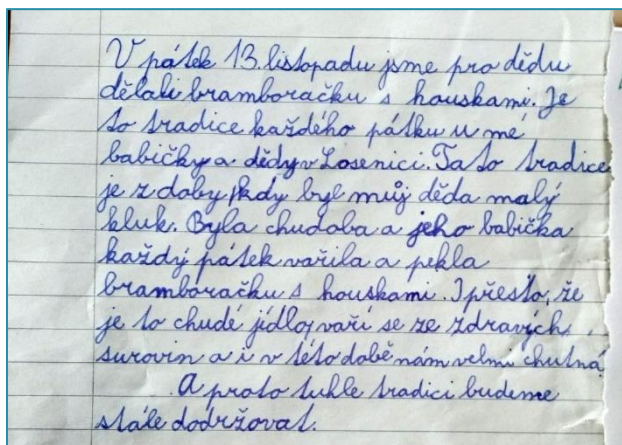 V pátek 13. listopadu jsme pro dědu
dělali bramboračku s houskami. Je
to tradice každého pátku u mé
babičky a dědy v Losenici. Tato tradice
je z doby, kdy byl můj děda malý
kluk. Byla chudoba a jeho babička
každý pátek vařila a pekla
bramboračku s houskami. I přesto, že
je to chudé jídlo, vaří se ze zdravých
surovin a i v této době nám velmi chutná.
A proto tuhle tradici budeme
stále dodržovat.